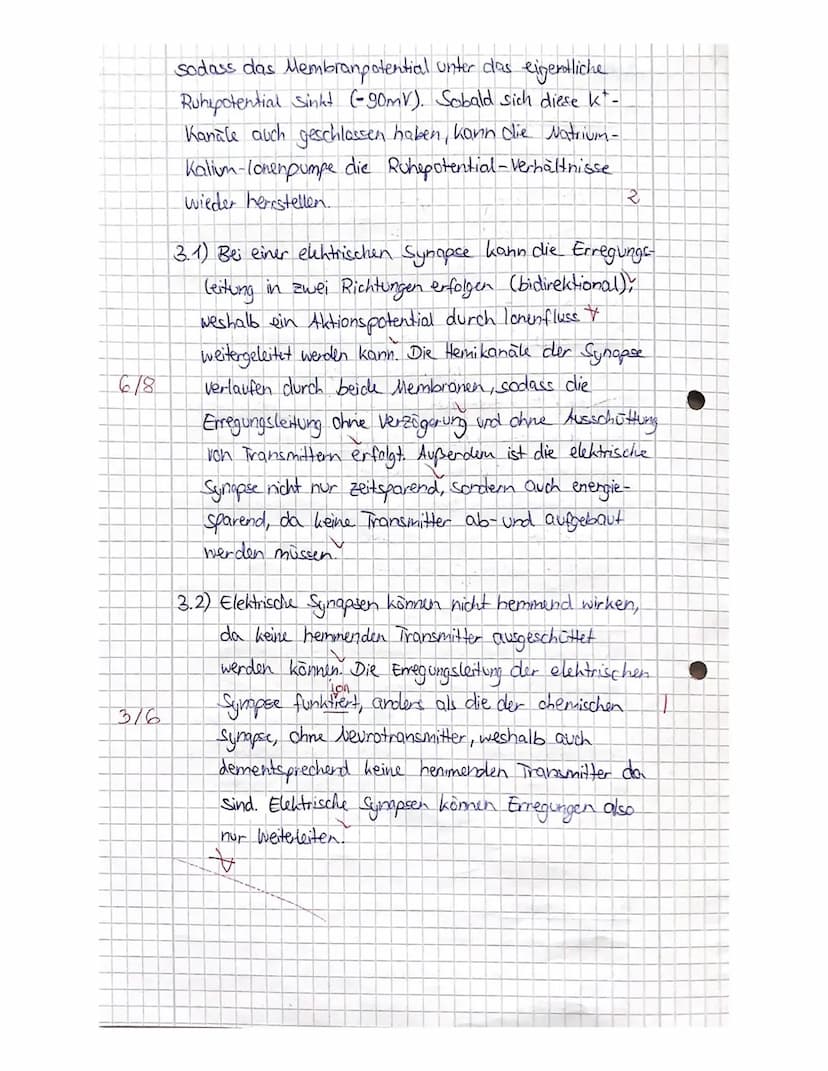 sodass das Membranpotential unter das eigentliche
Ruhepotential sinkt (-90mV). Sobald sich diese K⁺-
Kanäle auch geschlossen haben, kann die Natrium-
Kalium-Ionenpumpe die Ruhepotential-Verhältnisse
wieder herstellen.
2
3.1) Bei einer elektrischen Synapse kann die Erregungs-
leitung in zwei Richtungen erfolgen (bidirektional),
weshalb ein Aktionspotential durch Ionenfluss
weitergeleitet werden kann. Die Hemikanäle der Synapse
6/8 verlaufen durch beide Membranen, sodass die
Erregungsleitung ohne Verzögerung und ohne Ausschüttung
von Transmittern erfolgt. Außerdem ist die elektrische
Synapse nicht nur zeitsparend, sondern auch energie-
sparend, da keine Transmitter ab- und aufgebaut
werden müssen.
3.2) Elektrische Synapsen können nicht hemmend wirken,
da keine hemmenden Transmitter ausgeschüttet
werden können. Die Erregungsleitung der elektrischen
ion
Synapse funktiert, anders als die der chemischen |
3/6
Synapse, ohne Neurotransmitter, weshalb auch
dementsprechend keine hemmenden Transmitter da
sind. Elektrische Synapsen können Erregungen also
nur weiterleiten.